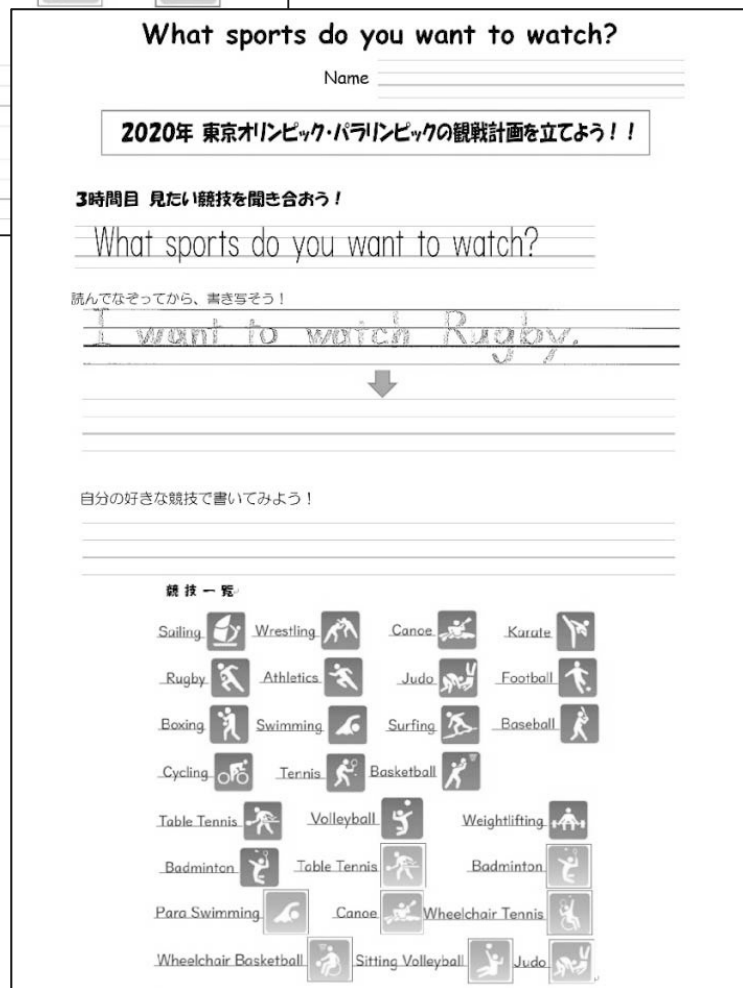 What sports do you want to watch?
Name
2020年 東京オリンピック・パラリンピックの観戦計画を立てよう！！
3時間目 見たい競技を聞き合おう！
What sports do you want to watch?
読んでなぞってから、書き写そう！
I want to watch Rugby.
自分の好きな競技で書いてみよう！
競技一覧
Sailing Wrestling Canoe Karate
Rugby Athletics Judo Football
Boxing Swimming Surfing Baseball
Cycling Tennis Basketball
Table Tennis Volleyball Weightlifting
Badminton Table Tennis Badminton
Para Swimming Canoe Wheelchair Tennis
Wheelchair Basketball Sitting Volleyball Judo